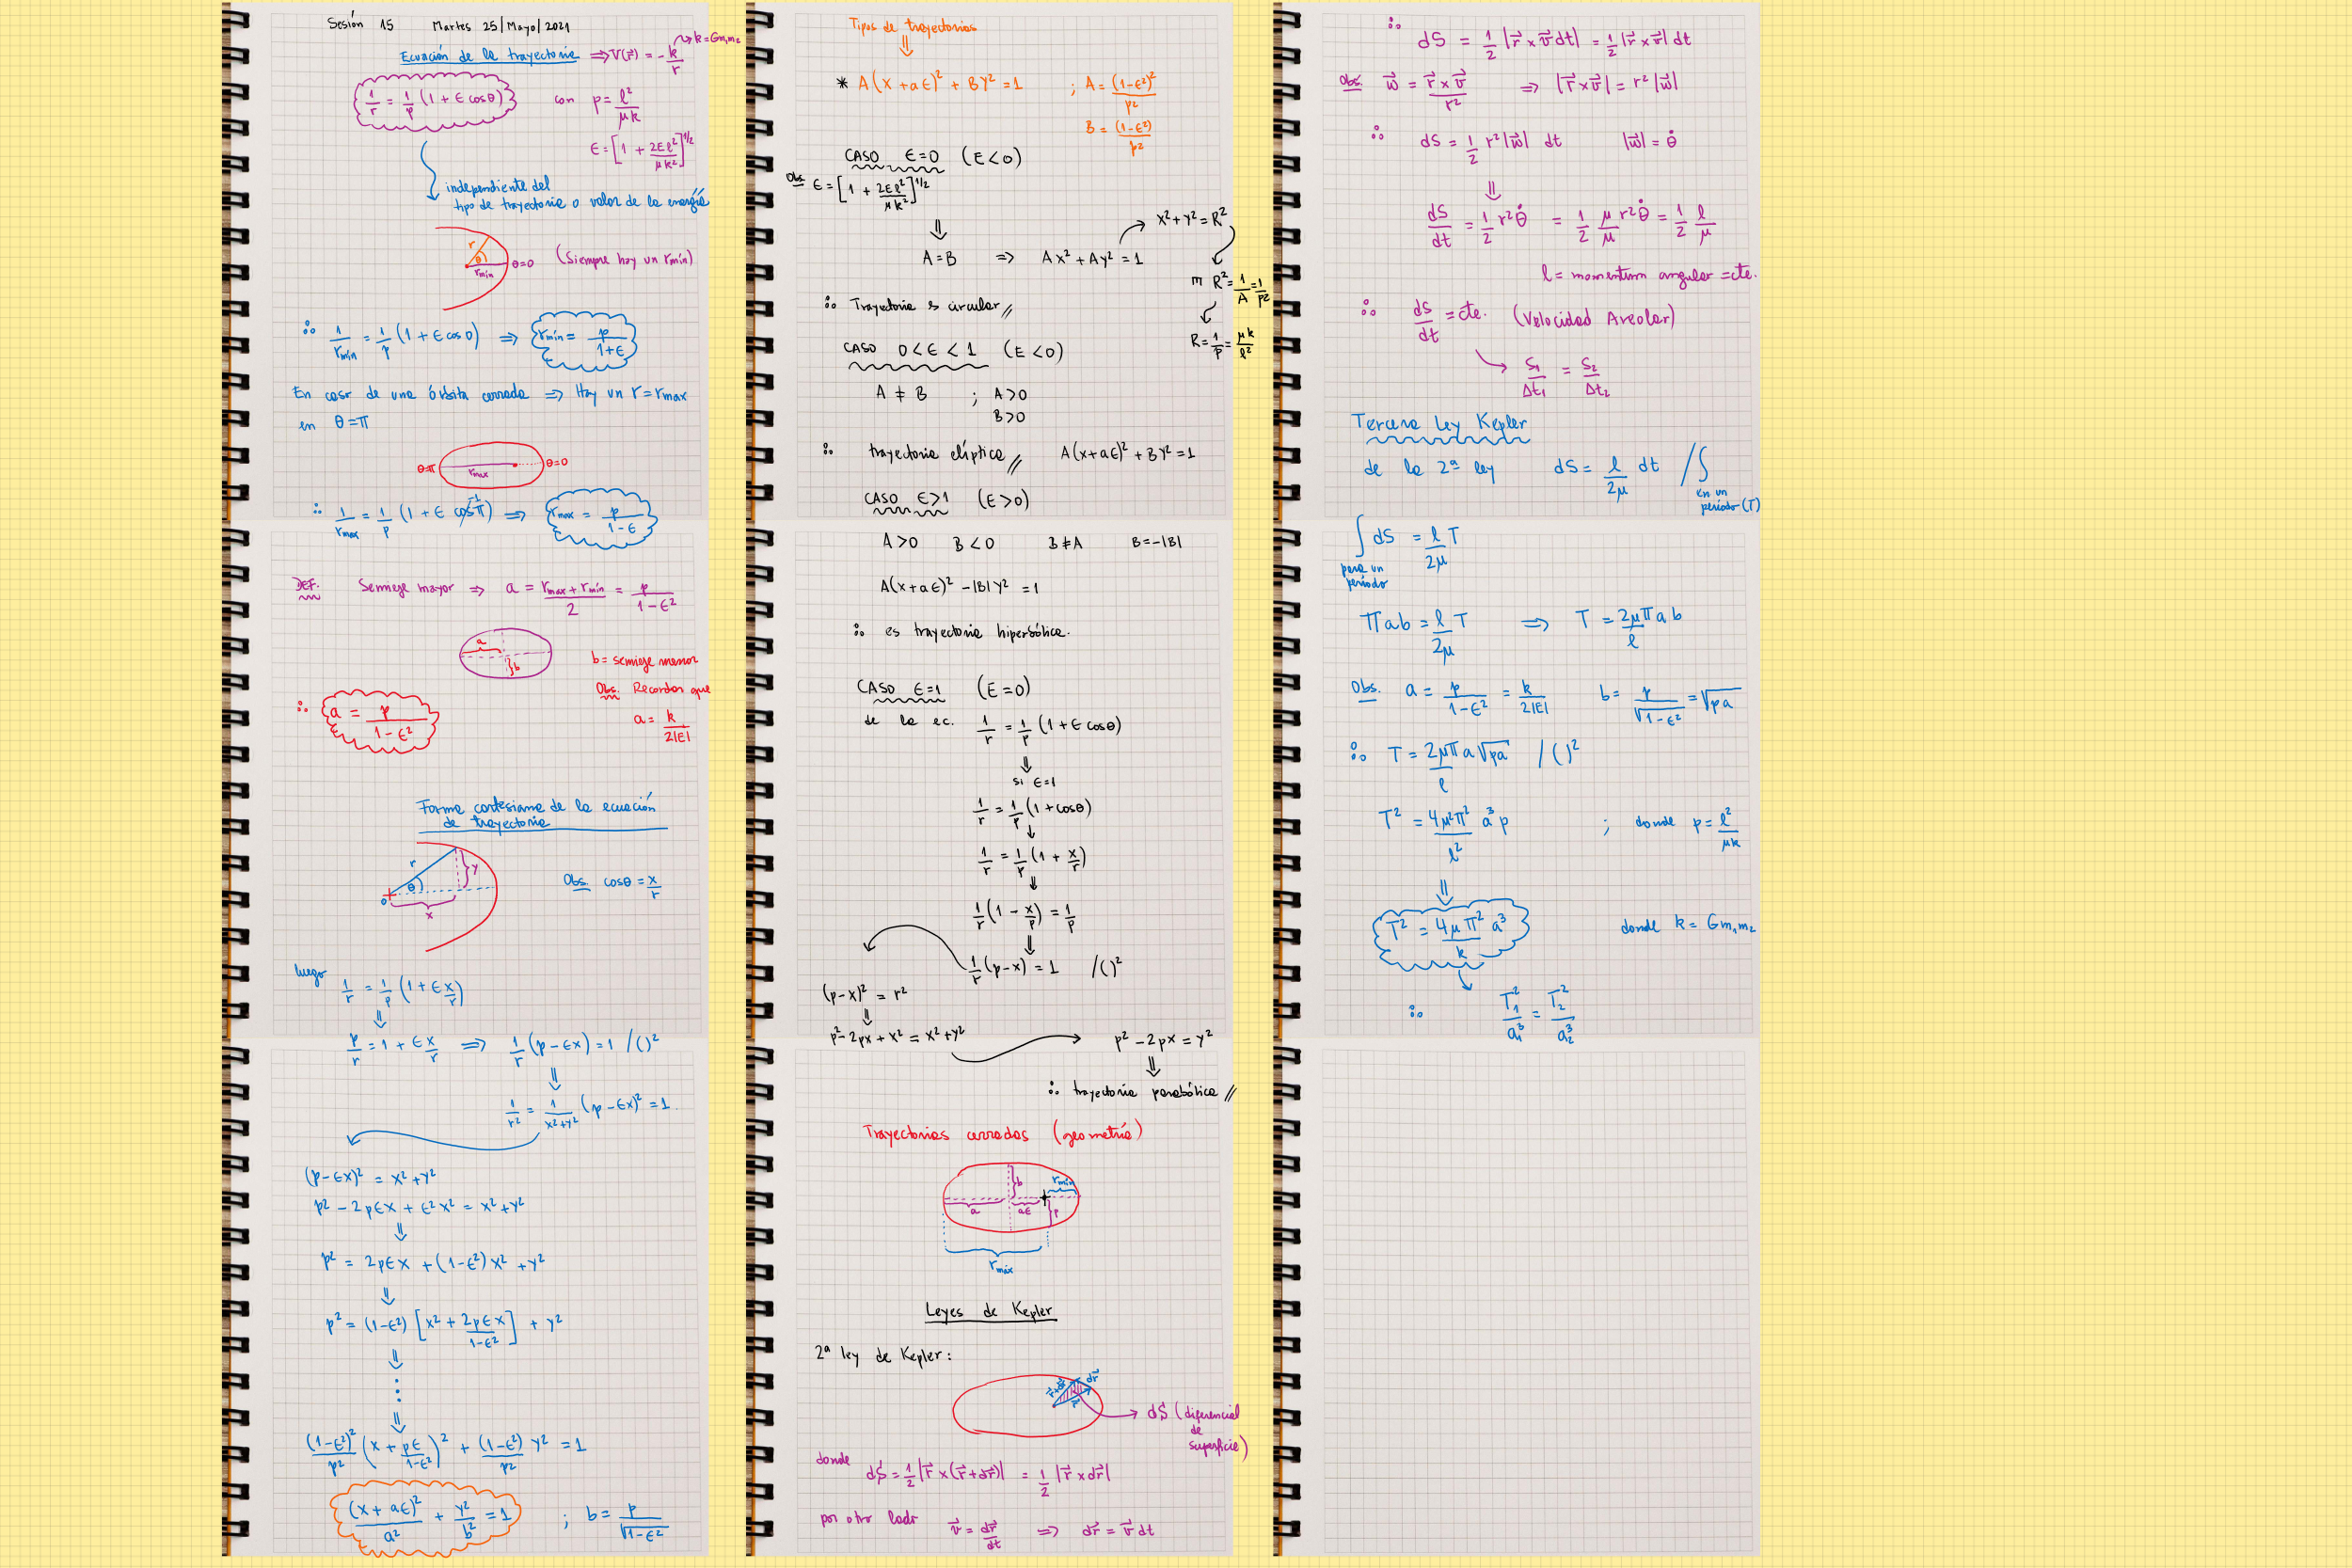 Sesión 15 Martes 25/Mayo/2021
Ecuación de la trayectoria ⇒ V(r⃗) = -k/r → k = Gm₁m₂
1/r = 1/p (1 + ϵ cosθ) con p = l²/μk
ϵ = [1 + 2El²/μk²]^1/2
independiente del
tipo de trayectoria o valor de la energía
r θ rmín θ=0 (Siempre hay un rmín)
∴ 1/rmín = 1/p (1 + ϵ cos 0) ⇒ rmín = p/(1+ϵ)
En caso de una órbita cerrada ⇒ Hay un r = rmax
en θ=π
θ=π rmax θ=0
∴ 1/rmax = 1/p (1 + ϵ cosπ) -1 ⇒ rmax = p/(1-ϵ)
DEF. Semieje mayor ⇒ a = (rmax + rmín)/2 = p/(1-ϵ²)
a b
b = semieje menor
Obs. Recordar que
∴ a = p/(1-ϵ²) a = k/2|E|
Forma cartesiana de la ecuación
de trayectoria
r θ y 0 x Obs. cosθ = x/r
luego
1/r = 1/p (1 + ϵ x/r)
⇓
p/r = 1 + ϵ x/r ⇒ 1/r (p-ϵx) = 1 /()²
⇓
1/r² = 1/(x²+y²) (p-ϵx)² = 1
(p-ϵx)² = x²+y²
p² - 2pϵx + ϵ²x² = x²+y²
⇓
p² = 2pϵx + (1-ϵ²)x² + y²
⇓
p² = (1-ϵ²) [x² + 2pϵx/(1-ϵ²)] + y²
⇓
⋮
⇓
(1-ϵ²)²/p² (x + pϵ/(1-ϵ²))² + (1-ϵ²)/p² y² = 1
(x+aϵ)²/a² + y²/b² = 1 ; b = p/√(1-ϵ²)
Tipos de trayectorias
⇓
* A(x+aϵ)² + By² = 1 ; A = (1-ϵ²)²/p²
B = (1-ϵ²)/p²
CASO ϵ=0 (E<0)
Obs ϵ = [1 + 2El²/μk²]^1/2
⇓
x²+y² = R²
A=B ⇒ Ax² + Ay² = 1
π R² = 1/A = 1/p²
∴ Trayectoria es circular //
R = 1/p = μk/l²
CASO 0<ϵ<1 (E<0)
A ≠ B ; A>0
B>0
∴ trayectoria elíptica // A(x+aϵ)² + By² = 1
CASO ϵ>1 (E>0)
A>0 B<0 B≠A B=-|B|
A(x+aϵ)² - |B|y² = 1
∴ es trayectoria hiperbólica.
CASO ϵ=1 (E=0)
de la ec. 1/r = 1/p (1 + ϵ cosθ)
⇓
si ϵ=1
1/r = 1/p (1+cosθ)
↓
1/r = 1/p (1 + x/r)
⇓
1/r (1 - x/p) = 1/p
⇓
1/r (p-x) = 1 /()²
(p-x)² = r²
⇓
p²-2px + x² = x²+y² → p² - 2px = y²
⇓
∴ trayectoria parabólica //
Trayectorias cerradas (geometría)
b rmín
a aϵ p
rmáx
Leyes de Kepler
2ª ley de Kepler:
r⃗+dr⃗ dr⃗ r⃗
dS (diferencial
de
superficie)
donde dS = 1/2 |r⃗ × (r⃗+dr⃗)| = 1/2 |r⃗ × dr⃗|
por otro lado v⃗ = dr⃗/dt ⇒ dr⃗ = v⃗ dt
∴ dS = 1/2 |r⃗ × v⃗ dt| = 1/2 |r⃗ × v⃗| dt
Obs. w⃗ = r⃗ × v⃗/r² ⇒ |r⃗ × v⃗| = r² |w⃗|
∴ dS = 1/2 r² |w⃗| dt |w⃗| = θ̇
⇓
dS/dt = 1/2 r² θ̇ = 1/2 μ/μ r² θ̇ = 1/2 l/μ
l = momentum angular = cte.
∴ dS/dt = cte. (Velocidad Areolar)
→ S₁/Δt₁ = S₂/Δt₂
Tercera Ley Kepler
de la 2ª ley dS = l/2μ dt /∫ en un
período (T)
∫ dS = l/2μ T
para un
período
πab = l/2μ T ⇒ T = 2μπab/l
Obs. a = p/(1-ϵ²) = k/2|E| b = p/√(1-ϵ²) = √pa
∴ T = 2μπa√pa/l /()²
T² = 4μ²π²/l² a³ p ; donde p = l²/μk
⇓
T² = 4μπ²/k a³ donde k = Gm₁m₂
∴ T₁²/a₁³ = T₂²/a₂³